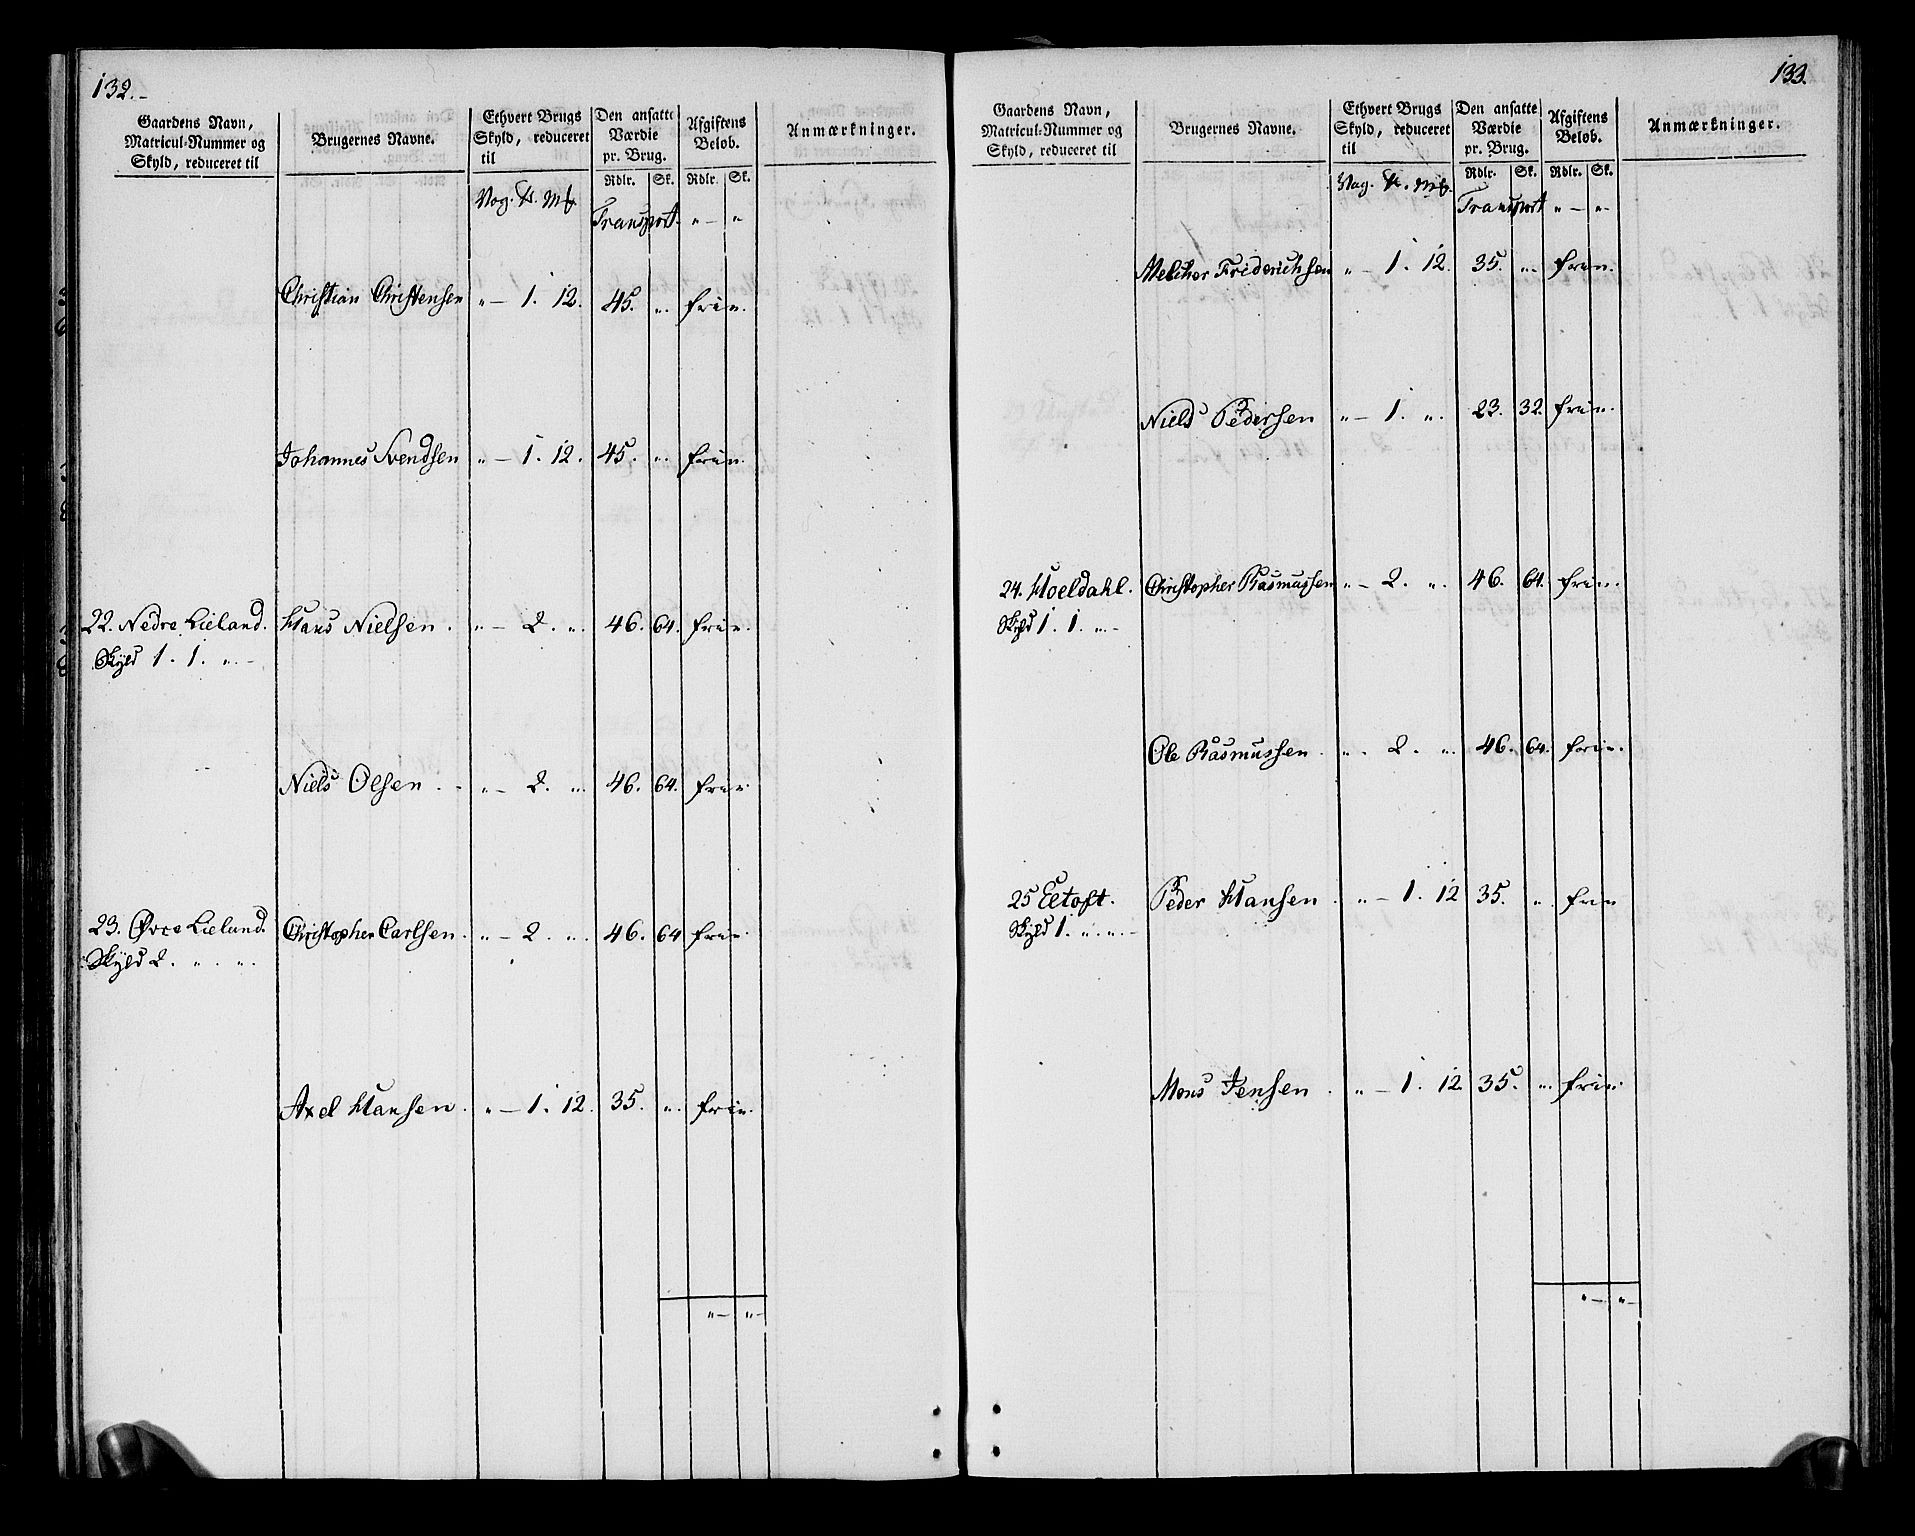 132.
Gaardens Navn, Matricul-Nummer og Skyld, reduceret til
Brugernes Navne.
Ethvert Brugs Skyld, reduceret til
Den ansatte Værdie pr. Brug.
Afgiftens Beløb.
Anmærkninger.
Rdlr. Sk. Rdlr. Sk.
Vog. ℔. Mk
Transport. „ – „
Christian Christensen „ – 1. 12. 45. „ frie.
Johannes Svendsen „ – 1. 12. 45. „ frie.
22. Nedre Lieland. Hans Nielsen. „ – 2. „ 46. 64. frie.
Skyld 1. 1. „ –
Niels Olsen. – „ – 2. „ 46. 64. frie
23. Øvre Lieland. Christopher Carlsen. „ – 2. „ 46. 64 frie.
Skyld 2. „ „
Axel Hansen. „ – 1. 12. 35. „ frie.
„ – „ –
133.
Gaardens Navn, Matricul-Nummer og Skyld, reduceret til
Brugernes Navne.
Ethvert Brugs Skyld, reduceret til
Den ansatte Værdie pr. Brug.
Afgiftens Beløb.
Anmærkninger.
Rdlr. Sk. Rdlr. Sk.
Vog. ℔. Mk.
Transport „ – „
Melchor Friderichsen „ – 1. 12. 35. „ frie.
Niels Pedersen „ – 1. „ 23. 32. frie.
24. Hoeldahl. Christopher Rasmussen „ – 2. „ 46. 64. frie.
Skyld 1. 1. „ –
Ole Rasmussen. „ 2. „ 46. 64. frie.
25 Eetoft. Peder Hansen. „ – 1. 12 35. „ frie
Skyld 1. „ „ –
Mons Jensen. „ – 1. 12 35. „ frie.
„ – „ –